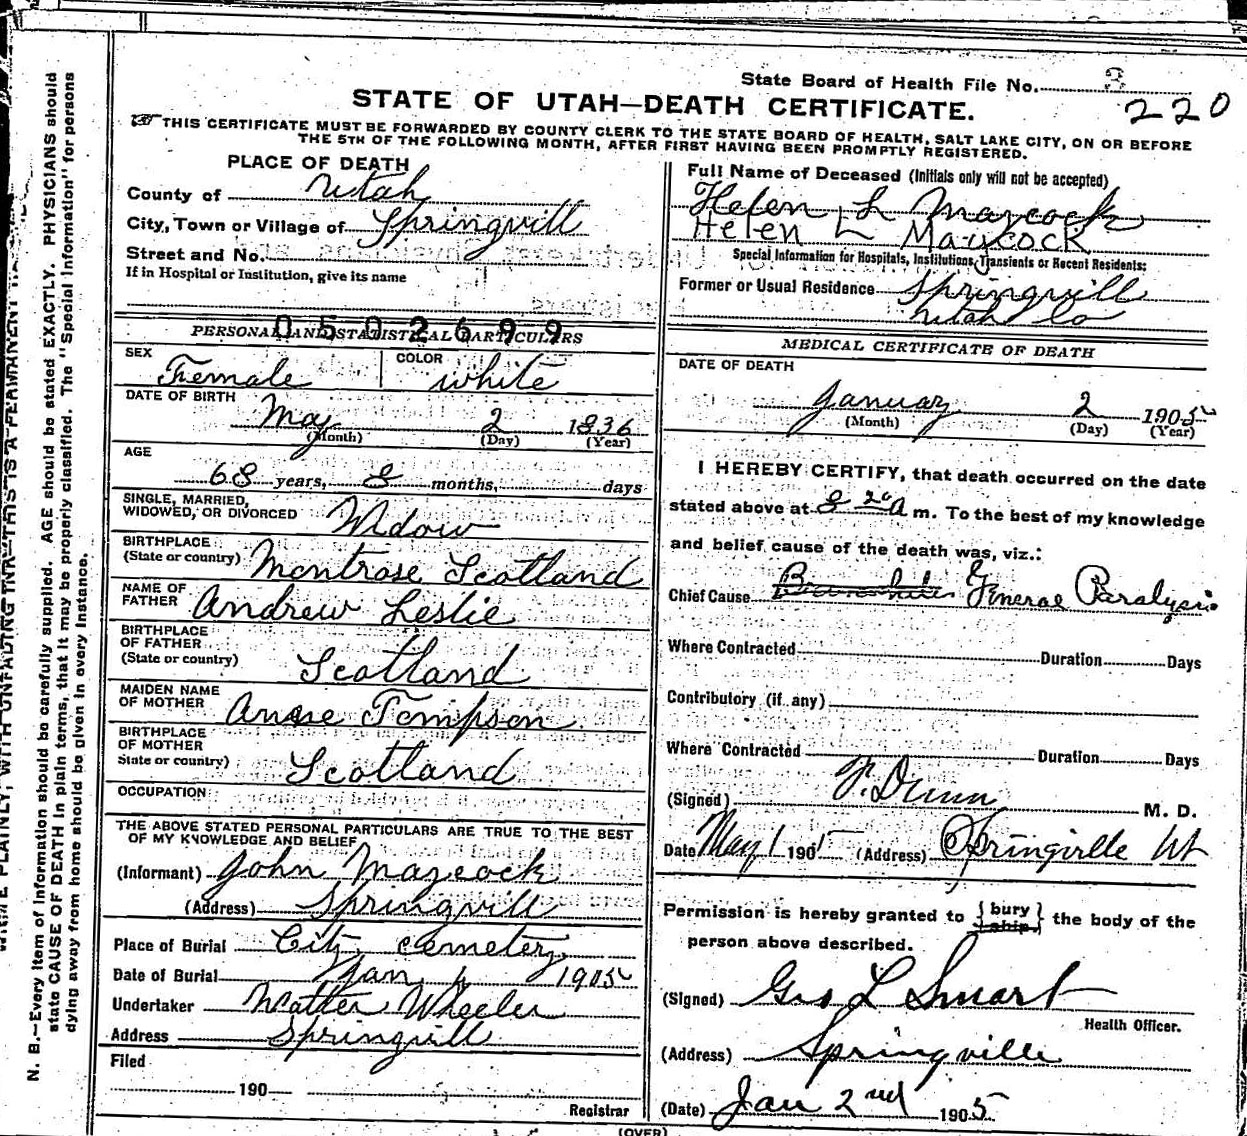 State Board of Health File No. 3
220
STATE OF UTAH—DEATH CERTIFICATE.
THIS CERTIFICATE MUST BE FORWARDED BY COUNTY CLERK TO THE STATE BOARD OF HEALTH, SALT LAKE CITY, ON OR BEFORE
THE 5TH OF THE FOLLOWING MONTH, AFTER FIRST HAVING BEEN PROMPTLY REGISTERED.
PLACE OF DEATH
County of Utah
City, Town or Village of Springvill
Street and No.
If in Hospital or Institution, give its name
0502699
PERSONAL AND STATISTICAL PARTICULARS
SEX Female COLOR white
DATE OF BIRTH
May 2 1836
(Month) (Day) (Year)
AGE
68 years, 8 months, days
SINGLE, MARRIED,
WIDOWED, OR DIVORCED Widow
BIRTHPLACE
(State or country) Montrose Scotland
NAME OF
FATHER Andrew Leslie
BIRTHPLACE
OF FATHER
(State or country) Scotland
MAIDEN NAME
OF MOTHER Tompson
BIRTHPLACE
OF MOTHER
State or country) Scotland
OCCUPATION
THE ABOVE STATED PERSONAL PARTICULARS ARE TRUE TO THE BEST
OF MY KNOWLEDGE AND BELIEF
(Informant) John Maycock
(Address) Springvill
Place of Burial City Cemetery
Date of Burial Jan 1905
Undertaker Wheeler
Address Springvill
Filed
190
Registrar
Full Name of Deceased (Initials only will not be accepted)
Helen L Maycock
Helen L Maycock
Special Information for Hospitals, Institutions, Transients or Recent Residents:
Former or Usual Residence Springvill
Utah Co
MEDICAL CERTIFICATE OF DEATH
DATE OF DEATH
January 2 1905
(Month) (Day) (Year)
I HEREBY CERTIFY, that death occurred on the date
stated above at 8 20 a m. To the best of my knowledge
and belief cause of the death was, viz.:
Chief Cause General Paralysis
Where Contracted Duration Days
Contributory (if any)
Where Contracted Duration Days
(Signed) F. Dunn M. D.
Date May 1 1905 (Address) Springville Ut
Permission is hereby granted to { bury
ship } the body of the
person above described.
(Signed) Geo L Smart
Health Officer.
(Address) Springville
(Date) Jan 2nd 1905
(OVER)
N. B.—Every item of information should be carefully supplied. AGE should be stated EXACTLY. PHYSICIANS should
state CAUSE OF DEATH in plain terms, that it may be properly classified. The "Special Information" for persons
dying away from home should be given in every instance.
PLAINLY, WITH UNFADING INK—THIS IS A PERMANENT